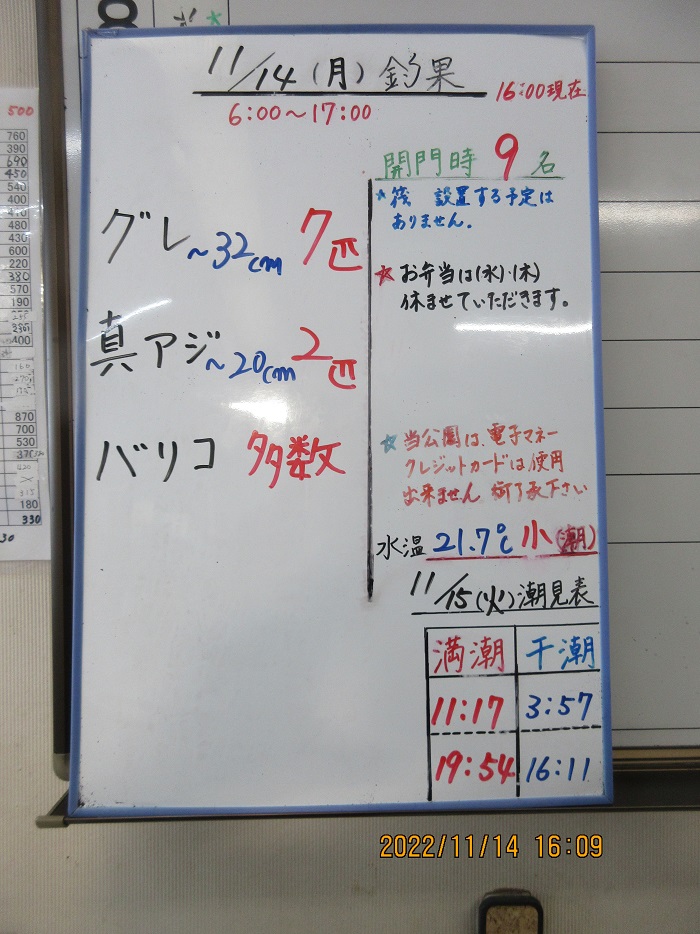 11/14(月)釣果
16:00現在
6:00～17:00
開門時 9名
★筏 設置する予定は
ありません。
★お弁当は(水)・(木)
休ませていただきます。
グレ～32cm 7匹
真アジ～20cm 2匹
バリコ 多数
★当公園は、電子マネー
クレジットカードは使用
出来ません 御了承下さい
水温 21.7℃ 小(潮)
11/15(火)潮見表
満潮 干潮
11:17 3:57
19:54 16:11
2022/11/14 16:09
500
760
390
690
450
540
400
480
430
600
220
380
570
190
400
870
700
530
180
330